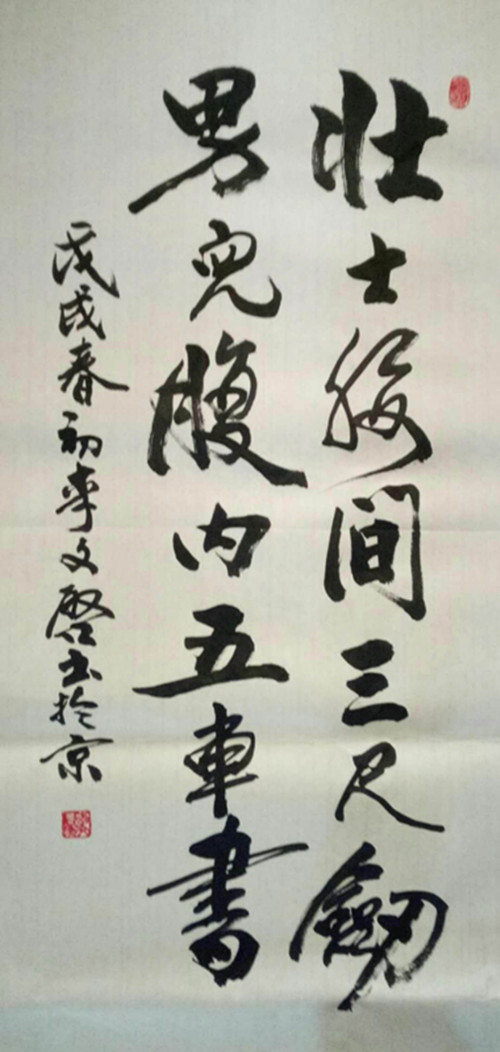 壮士腰间三尺劒
男兒腹内五車書
戊戌春初李文啓书於京